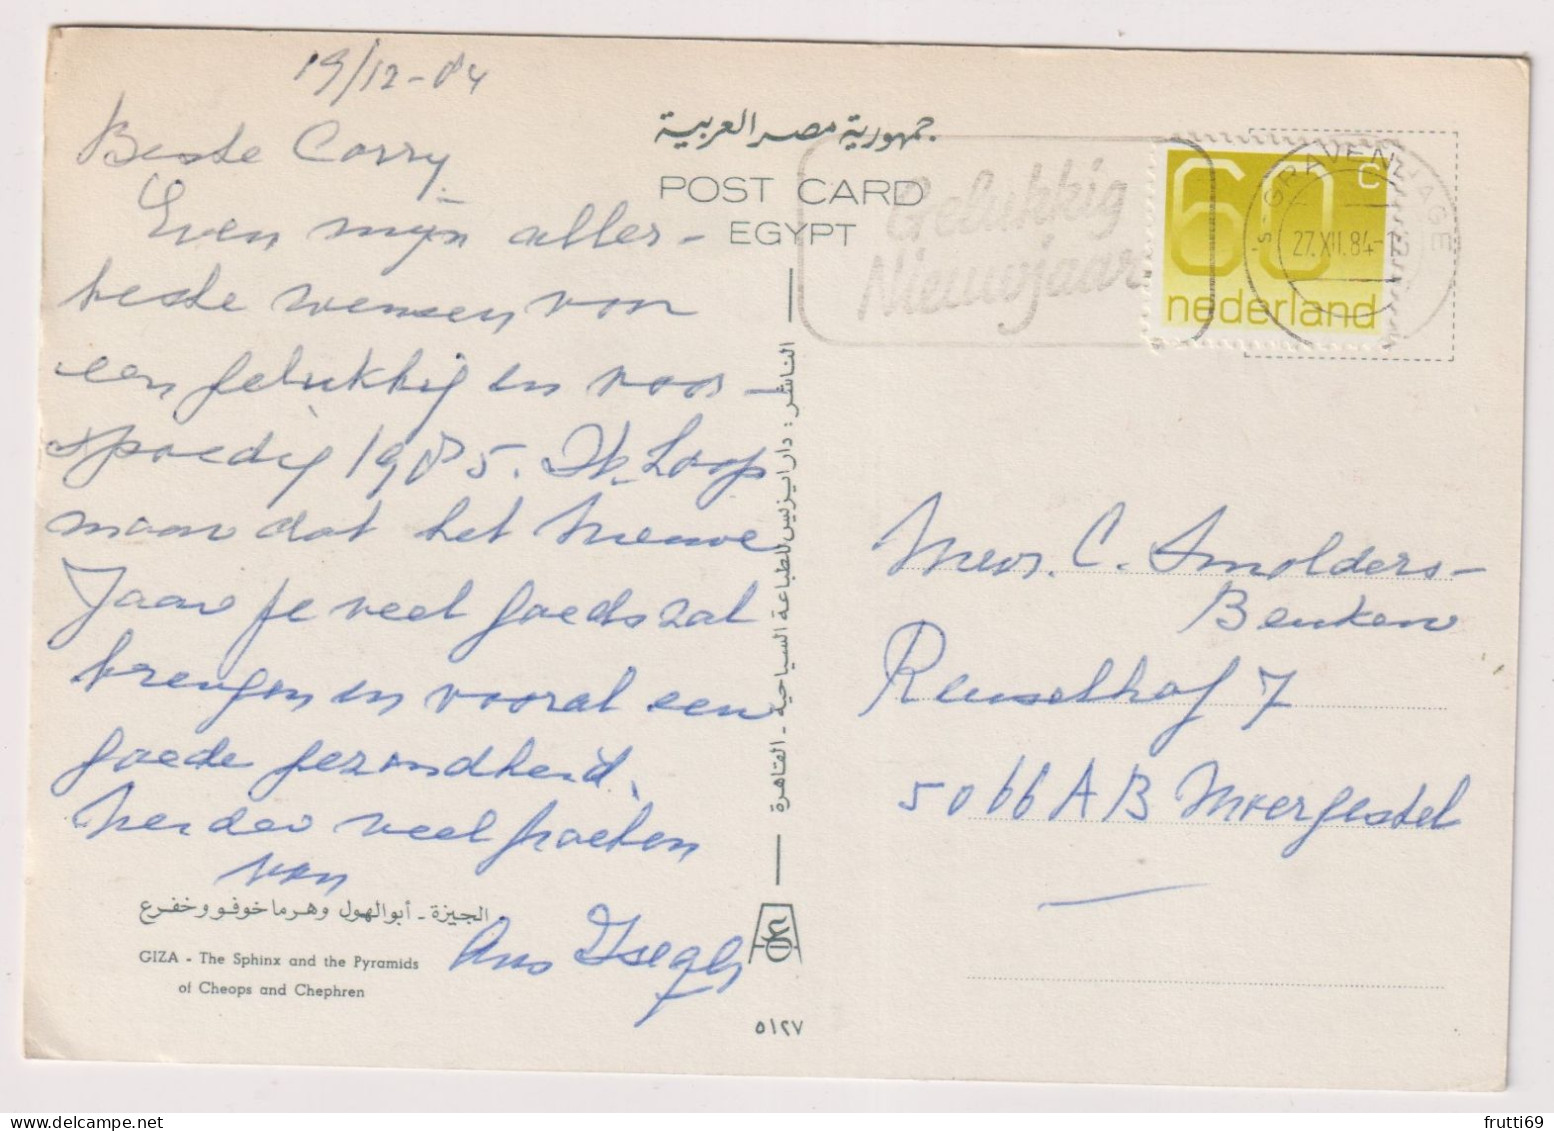 19/12-84
Beste Corry
Even mijn aller-
beste wensen voor
een gelukkig en voor-
spoedig 1985. Ik hoop
maar dat het nieuwe
Jaar je veel goeds zal
brengen en vooral een
goede gezondheid.
Verder veel groeten
van
Ans
جمهورية مصر العربية
POST CARD
EGYPT
Gelukkig
Nieuwjaar
60 c
nederland
's-GRAVENHAGE
27.XII.84
الناشر : دار ايزيس للطباعة السياحية - القاهرة
Mevr. C. Smolders-
Beuken
Reuselhof 7
5066 AB Moergestel
الجيزة - أبوالهول وهرما خوفو وخفرع
GIZA - The Sphinx and the Pyramids
of Cheops and Chephren
٥١٢٧
frutti69